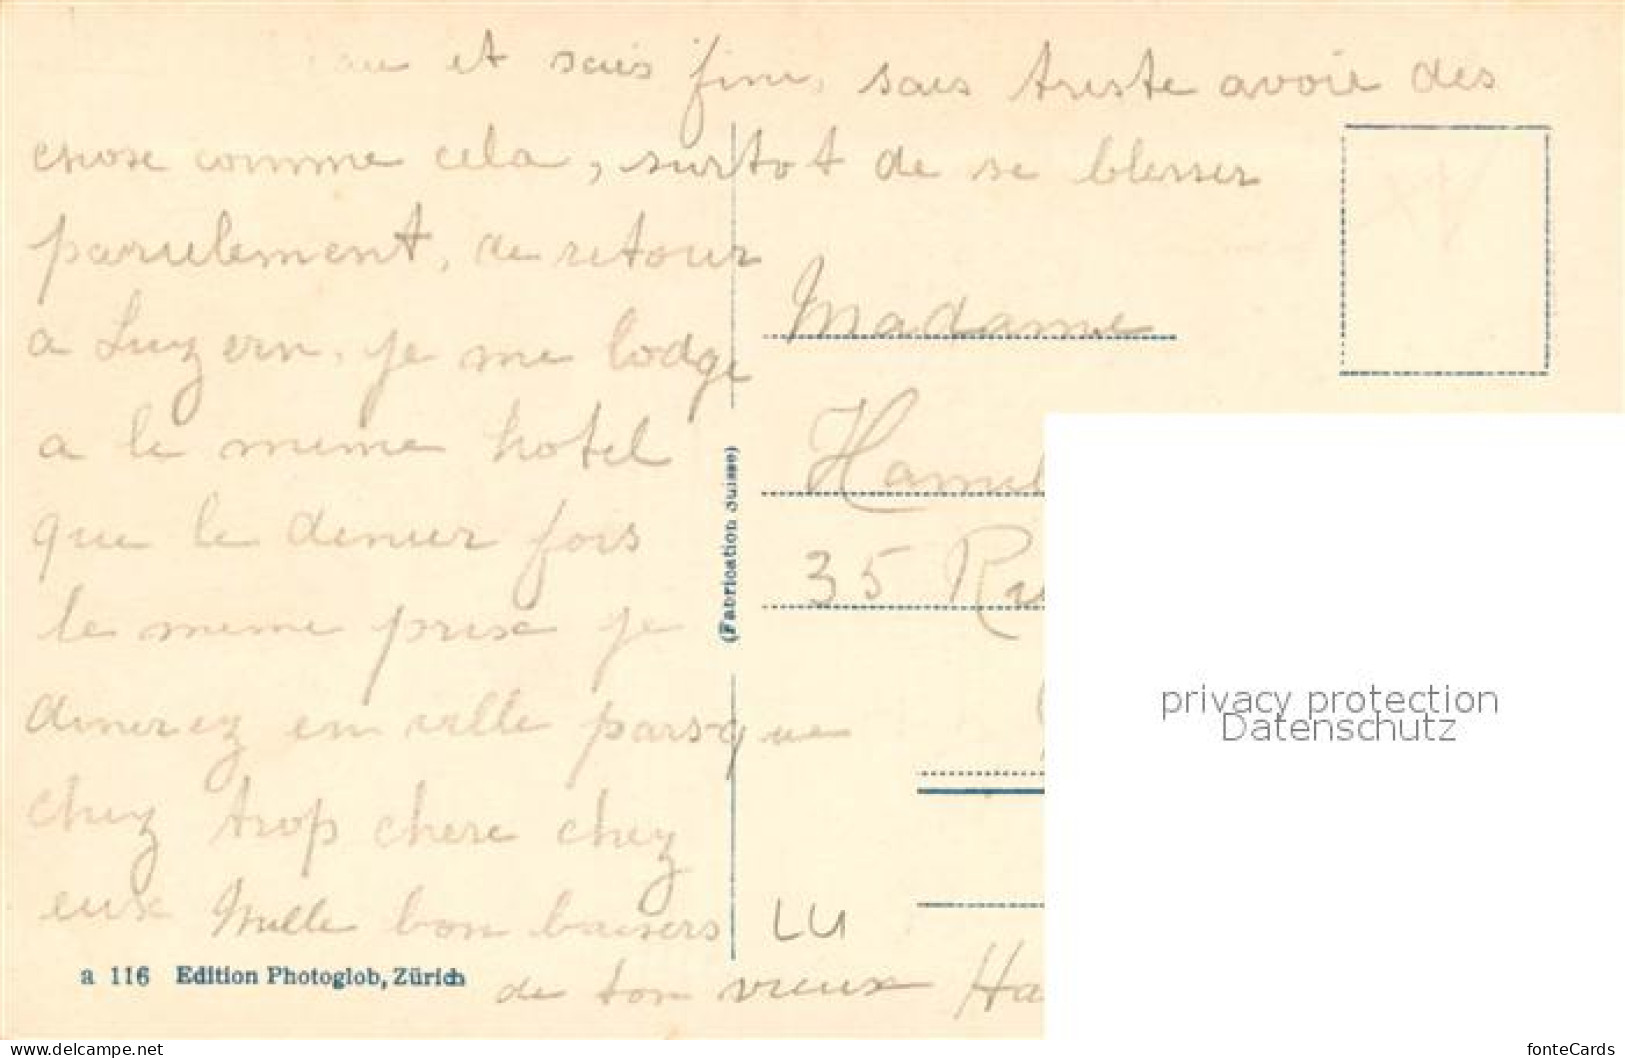 et suis fini, sais triste avoir des
chose comme cela, surtot de se blesser
parielement, de retour
a Luzern, je me lodge
a le meme hotel
que le denier fois
le meme prix je
dinerez en ville parsque
chez trop chere chez
eux Mille bon baisers
de ton vieux Ha
Madame
35 Ru
LU
(Fabrication Suisse)
a 116 Edition Photoglob, Zürich
privacy protection
Datenschutz
www.delcampe.net
fonteCards